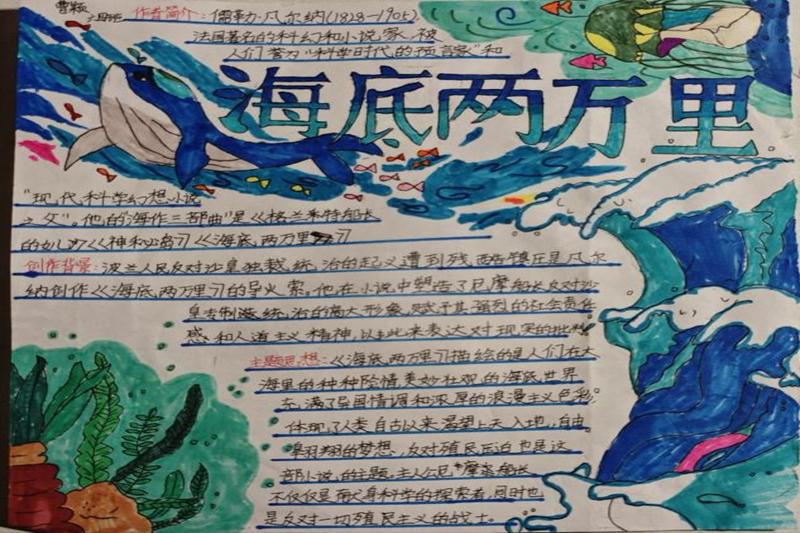 曹颖
作者简介：儒勒·凡尔纳(1828-1905).
法国著名的科幻和小说家，被
人们誉为"科学时代的预言家"和
海底两万里
"现代科学幻想小说
之父"。他的海作三部曲"是《格兰来特船长
的女儿》《神秘岛》《海底两万里》
创作背景：波兰人民反对沙皇独裁统治的起义遭到残酷镇压是凡尔
纳创作《海底两万里》的导火索。他在小说中塑造了尼摩船长反对沙
皇专制独统治的高大形象，赋予其强烈的社会责任
感和人道主义精神，以此来表达对现实的批判。
主题思想：《海底两万里》描绘的是人们在大
海里的种种险情，美妙壮观的海底世界
充满了异国情调和浓厚的浪漫主义色彩。
体现了人类自古以来渴望上天入地，自由
翱翔的梦想，反对殖民压迫也是这
部小说的主题，主人公尼摩船长
不仅仅是献身科学的探索者，同时也
是反对一切殖民主义的战士。